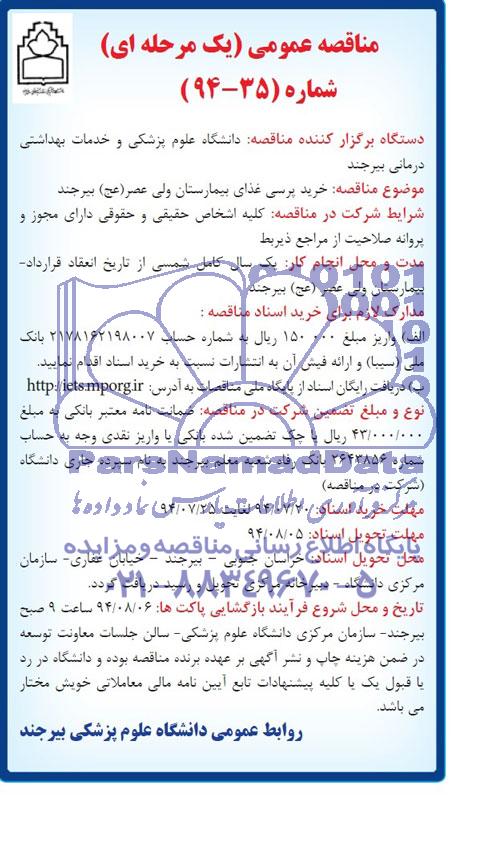 مناقصه عمومی (یک مرحله ای)
شماره (۳۵-۹۴)
دستگاه برگزار کننده مناقصه: دانشگاه علوم پزشکی و خدمات بهداشتی
درمانی بیرجند
موضوع مناقصه: خرید پرسی غذای بیمارستان ولی عصر(عج) بیرجند
شرایط شرکت در مناقصه: کلیه اشخاص حقیقی و حقوقی دارای مجوز و
پروانه صلاحیت از مراجع ذیربط
مدت و محل انجام کار: یک سال کامل شمسی از تاریخ انعقاد قرارداد-
بیمارستان ولی عصر (عج) بیرجند
مدارک لازم برای خرید اسناد مناقصه :
الف) واریز مبلغ ۱۵۰ ۰۰۰ ریال به شماره حساب ۲۱۷۸۱۶۲۱۹۸۰۰۷ بانک
ملی (سیبا) و ارائه فیش آن به انتشارات نسبت به خرید اسناد اقدام نمایید.
ب) دریافت رایگان اسناد از پایگاه ملی مناقصات به آدرس: http://iets.mporg.ir
نوع و مبلغ تضمین شرکت در مناقصه: ضمانت نامه معتبر بانکی به مبلغ
۴۳/۰۰۰/۰۰۰ ریال یا چک تضمین شده بانکی یا واریز نقدی وجه به حساب
شماره ۲۶۴۳۸۵۶ بانک رفاه شعبه معلم بیرجند به نام سپرده جاری دانشگاه
(شرکت در مناقصه)
مهلت خرید اسناد: ۹۴/۰۷/۲۰ لغایت ۹۴/۰۷/۲۵
مهلت تحویل اسناد: ۹۴/۰۸/۰۵
محل تحویل اسناد: خراسان جنوبی - بیرجند - خیابان غفاری- سازمان
مرکزی دانشگاه - دبیرخانه مرکزی تحویل و رسید دریافت گردد.
تاریخ و محل شروع فرآیند بازگشایی پاکت ها: ۹۴/۰۸/۰۶ ساعت ۹ صبح
بیرجند- سازمان مرکزی دانشگاه علوم پزشکی- سالن جلسات معاونت توسعه
در ضمن هزینه چاپ و نشر آگهی بر عهده برنده مناقصه بوده و دانشگاه در رد
یا قبول یک یا کلیه پیشنهادات تابع آیین نامه مالی معاملاتی خویش مختار
می باشد.
روابط عمومی دانشگاه علوم پزشکی بیرجند
ParsNamadData
پایگاه اطلاع رسانی مناقصه و مزایده
۰۲۱-۸۸۳۴۹۶۷۰-۵